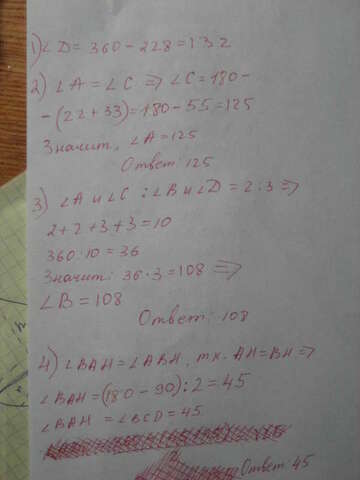 1) ∠D = 360 - 228 = 132
2) ∠A = ∠C ⇒ ∠C = 180 -
- (22 + 33) = 180 - 55 = 125
Значит, ∠A = 125
Ответ: 125
3) ∠A и ∠C : ∠B и ∠D = 2 : 3 ⇒
2 + 2 + 3 + 3 = 10
360 : 10 = 36
Значит: 36 · 3 = 108 ⇒
∠B = 108
Ответ: 108
4) ∠BAH = ∠ABH, т.к. AH = BH ⇒
∠BAH = (180 - 90) : 2 = 45
∠BAH = ∠BCD = 45
Ответ 45